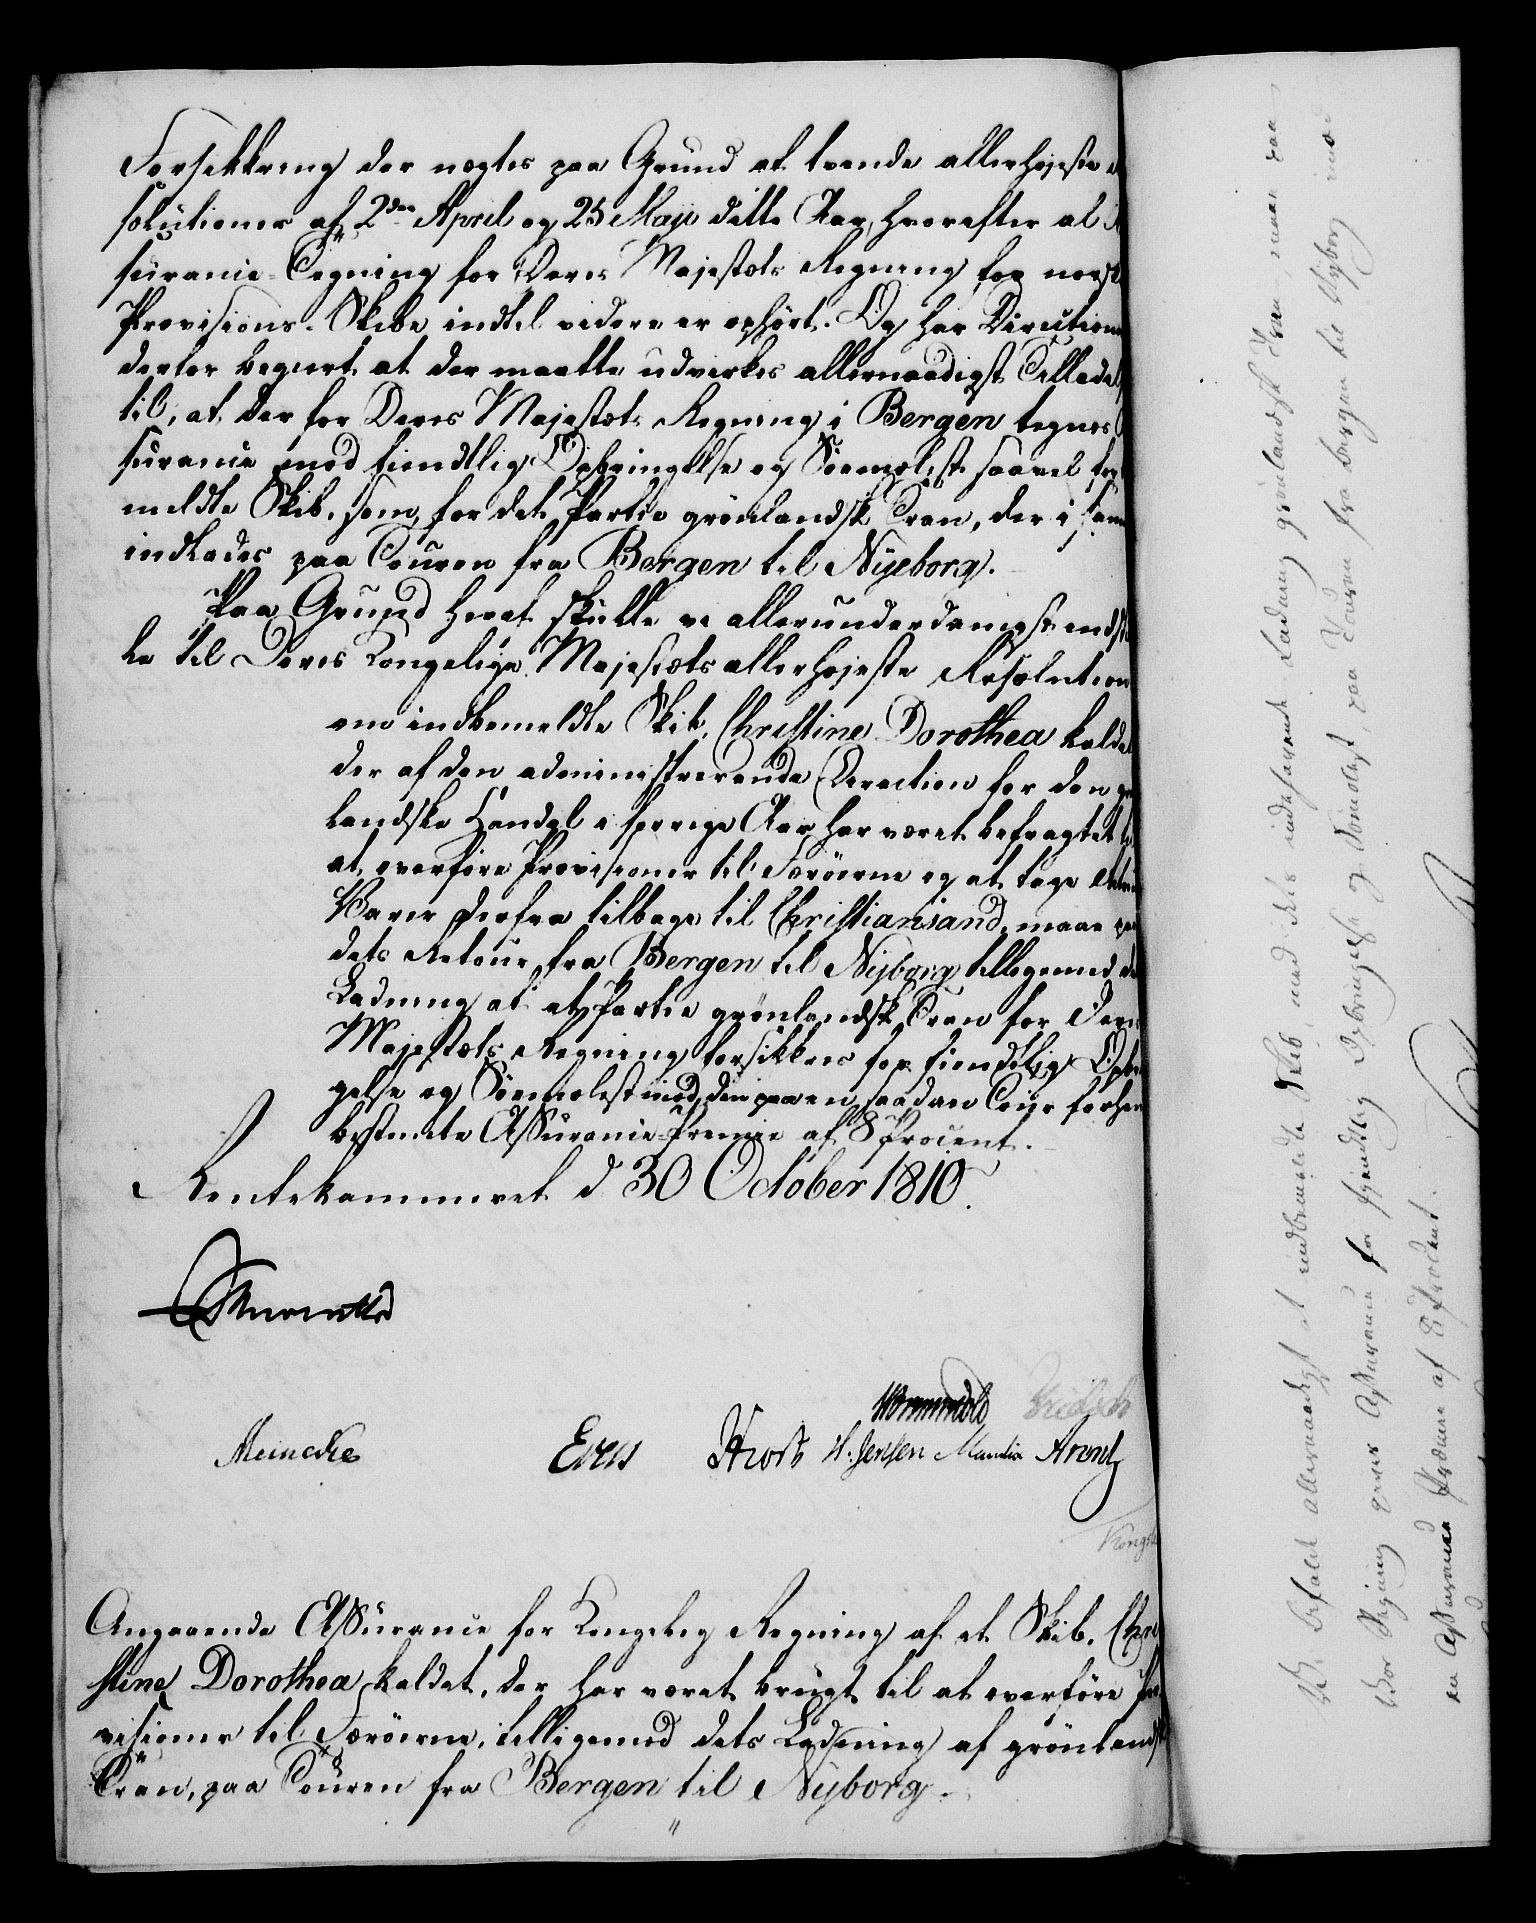 Forsikkring der nægtes paa Grund af tvende allerhøjeste
solutioner af 2den April og 25 Maji dette Aar, hvorefter al
surance-Tegning for Deres Majestæts Regning for norsk
Provisions-Skibe indtil videre er ophørt. Og har Direction
derfor begiert at der maatte udvirkes allernaadigst Tillad
til, at der for Deres Majestæts Regning i Bergen tegnes
surance mod fiendtlig Opbringelse og Söemolest saavel for
meldte Skib, som for det Partie grönlandsk Tran, der i sam
indlades paa Touren fra Bergen til Nyeborg.
Paa Grund heraf skulle vi allerunderdanigst indstil
le til Deres Kongelige Majestæts allerhøjeste Resolution
om indbemeldte Skib, Christine Dorothea kaldet
der af den administrerende Direction for den
landske Handel i forrige Aar har været befragtet
at overføre Provisioner til Færöerne og at tage
Varer derfra tilbage til Christiansand, maae
dets Retour fra Bergen til Nyborg tilligemed
Ladning af et Partie grönlandsk Tran for Deres
Majestæts Regning forsikkres for fiendtlig Opbrin
gelse og Söemolest imod den paa en saadan Tour forhen
bestemte Assurance-Premie af 8 Procent.
Rentekammeret d 30 October 1810.
Wormskiold
Meincke
H. Jensen Arentz
Angaaende Assurance for Kongelig Regning af et Skib, Chri
stine Dorothea kaldet, der har været brugt til at overføre Pro
visioner til Færöerne, tilligemed dets Ladning af grönlandsk
Tran, paa Touren fra Bergen til Nyborg.
Vi befale allernaadigst at indbemeldte Skib, med dets indehavende Ladning grønlandsk Tran maae paa
Vor Regning gives Assurance for fjendtlig Opbringelse og Sömolest, paa Touren fra Bergen til Nyborg imod
en Assurance Præmie af 8 Procent.